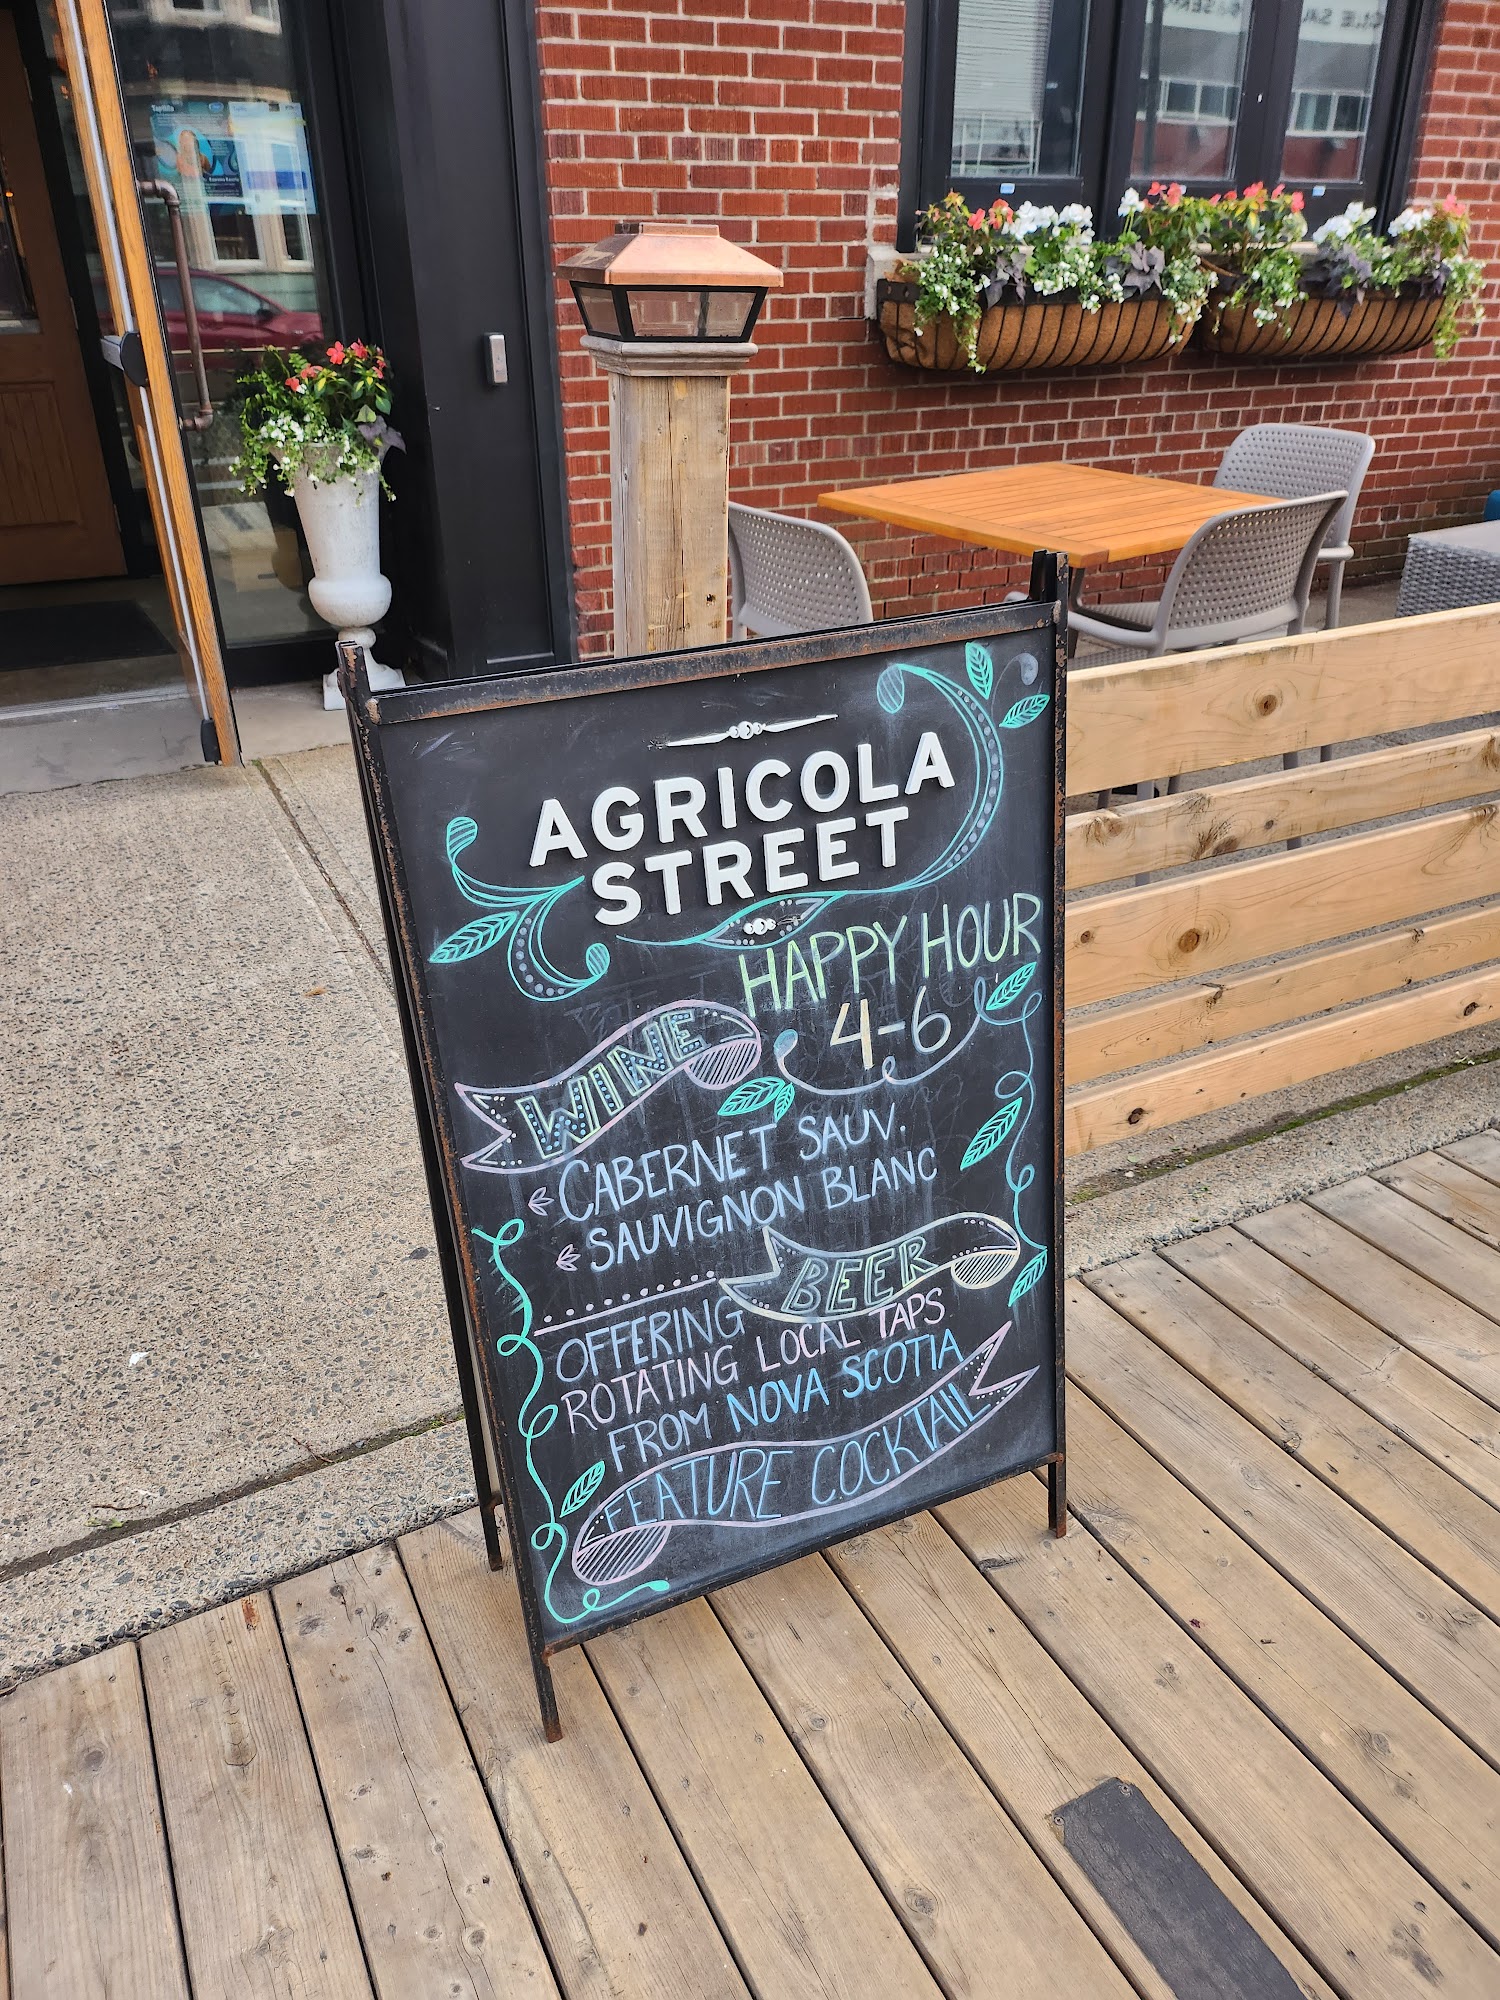 AGRICOLA
STREET
HAPPY HOUR
4-6
WINE
CABERNET SAUV.
SAUVIGNON BLANC
BEER
OFFERING
ROTATING LOCAL TAPS
FROM NOVA SCOTIA
FEATURE COCKTAIL